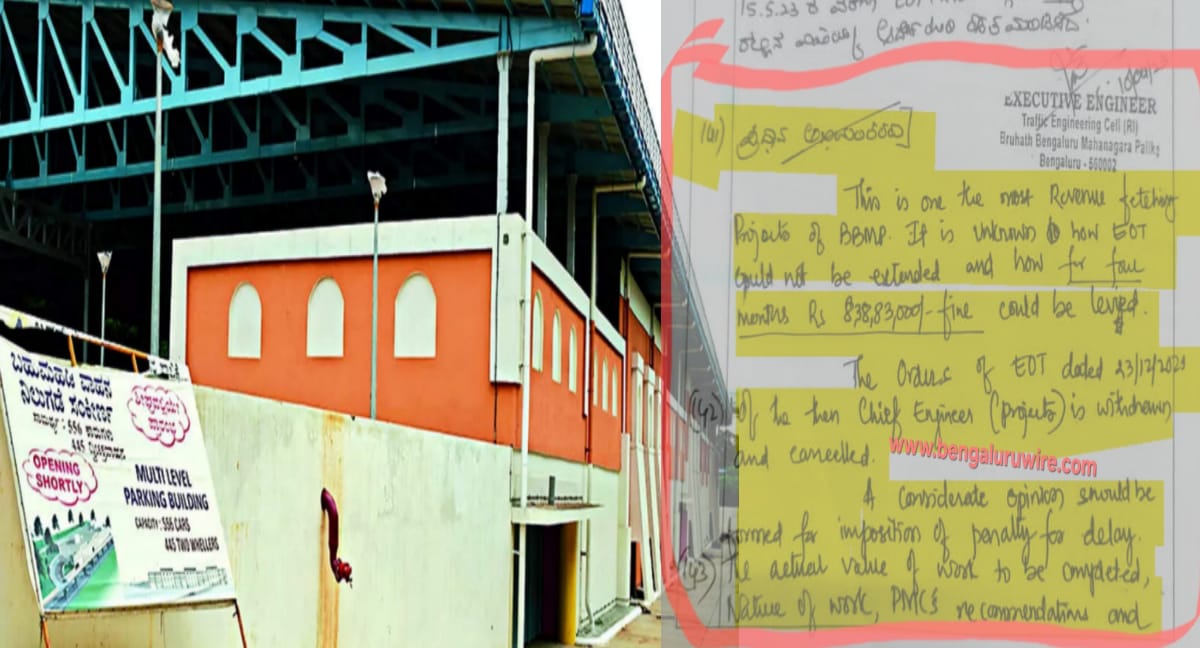 ಬಹುಮಹಡಿ ವಾಹನ
ನಿಲುಗಡೆ ಸಂಕೀರ್ಣ
ಸಾಮರ್ಥ್ಯ : 556 ಕಾರುಗಳು
445 ದ್ವಿಚಕ್ರವಾಹನ
ಶೀಘ್ರದಲ್ಲಿಯೇ
ಪ್ರಾರಂಭ
OPENING
SHORTLY
MULTI LEVEL
PARKING BUILDING
CAPACITY : 556 CARS
445 TWO WHELLERS
15.5.23
EXECUTIVE ENGINEER
Traffic Engineering Cell (RI)
Bruhath Bengaluru Mahanagara Palike
Bengaluru - 560002
This is one the most Revenue fetching
Projects of BBMP. It is unknown how EOT
could not be extended and how for four
months Rs 838,83,000/- fine could be levied.
The Orders of EOT dated 23/12/2021
(142) of the then Chief Engineer (projects) is withdrawn
and cancelled.
www.bengaluruwire.com
A considerate opinion should be
formed for imposition of penalty for delay.
(143) The actual value of work to be completed,
Nature of work, PMC's recommendations and